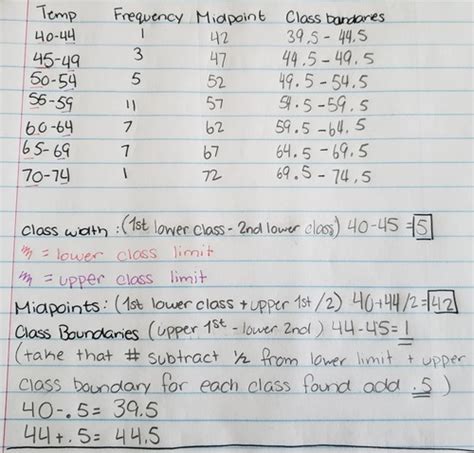 Temp Frequency Midpoint Class bandaries
40-44 1 42 39.5 - 44.5
45-49 3 47 44.5 - 49.5
50-54 5 52 49.5 - 54.5
55-59 11 57 54.5 - 59.5
60-64 7 62 59.5 - 64.5
65-69 7 67 64.5 - 69.5
70-74 1 72 69.5 - 74.5
class width : (1st lower class - 2nd lower class) 40-45 = 5
m = lower class limit
m = upper class limit
Midpoints: (1st lower class + upper 1st /2) 40+44/2 = 42
Class Boundaries (upper 1st - lower 2nd) 44-45 = 1
(take that # subtract 1/2 from lower limit + upper
class boundary for each class found add .5)
40-.5= 39.5
44+.5= 44.5